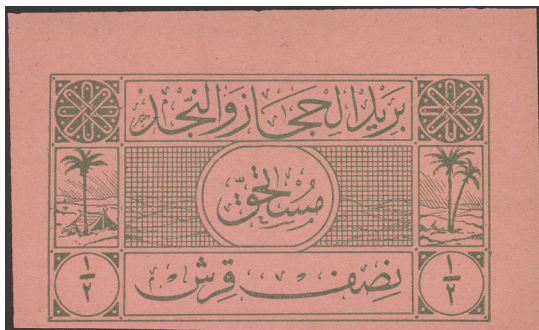 بريد الحجاز والنجد
مستحق
١/٢ نصف قرش ١/٢